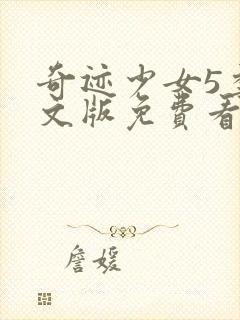 奇迹少女5季
文版免費看
詹媛